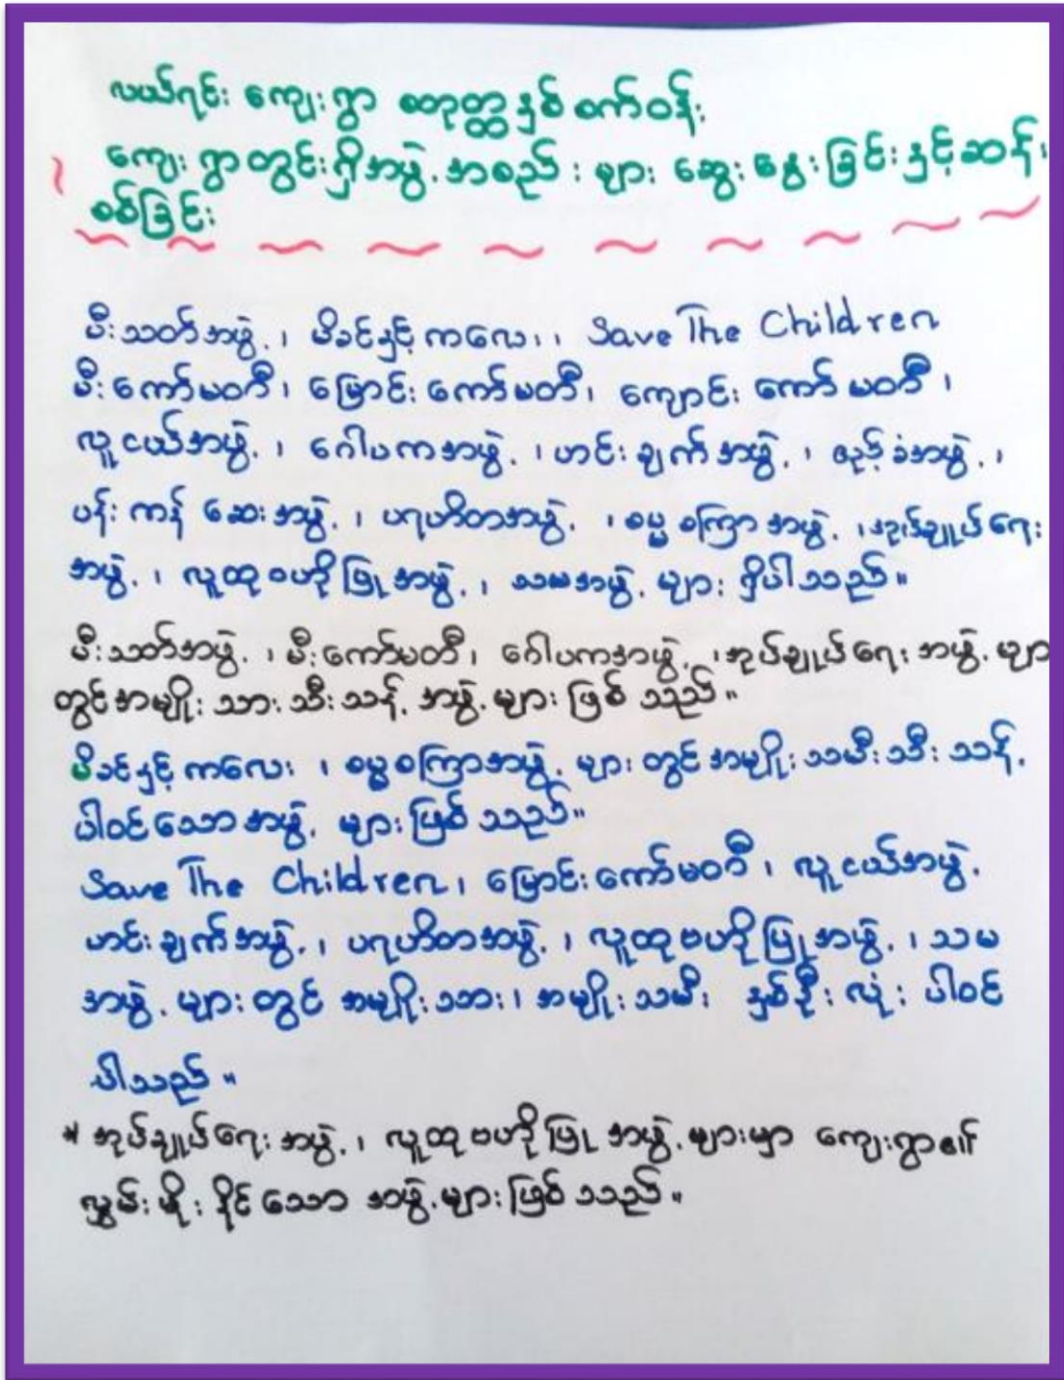 လယ်ရင်း ကျေးရွာ စတုတ္ထနှစ် စက်ဝန်း
ကျေးရွာတွင်းရှိအဖွဲ့အစည်းများ ဆွေးနွေးခြင်းနှင့်ဆန်း
စစ်ခြင်း
မီးသတ်အဖွဲ့၊ မိခင်နှင့်ကလေး၊ Save The Children
မီးကော်မတီ၊ မြောင်းကော်မတီ၊ ကျောင်းကော်မတီ၊
လူငယ်အဖွဲ့၊ ဂေါပကအဖွဲ့၊ ဟင်းချက်အဖွဲ့၊ ဧည့်ခံအဖွဲ့၊
ပန်းကန်ဆေးအဖွဲ့၊ ပရဟိတအဖွဲ့၊ ဓမ္မစကြာအဖွဲ့၊ အုပ်ချုပ်ရေး
အဖွဲ့၊ လူထုဗဟိုပြုအဖွဲ့၊ သမအဖွဲ့များ ရှိပါသည်။
မီးသတ်အဖွဲ့၊ မီးကော်မတီ၊ ဂေါပကအဖွဲ့၊ အုပ်ချုပ်ရေးအဖွဲ့များ
တွင်အမျိုးသားသီးသန့်အဖွဲ့များဖြစ်သည်။
မိခင်နှင့်ကလေး၊ ဓမ္မစကြာအဖွဲ့များတွင်အမျိုးသမီးသီးသန့်
ပါဝင်သောအဖွဲ့များဖြစ်သည်။
Save The Children၊ မြောင်းကော်မတီ၊ လူငယ်အဖွဲ့
ဟင်းချက်အဖွဲ့၊ ပရဟိတအဖွဲ့၊ လူထုဗဟိုပြုအဖွဲ့၊ သမ
အဖွဲ့များတွင် အမျိုးသား၊ အမျိုးသမီး နှစ်ဦးလုံးပါဝင်
ပါသည်။
* အုပ်ချုပ်ရေးအဖွဲ့၊ လူထုဗဟိုပြုအဖွဲ့များမှာ ကျေးရွာ၏
လွှမ်းမိုးနိုင်သော အဖွဲ့များဖြစ်သည်။